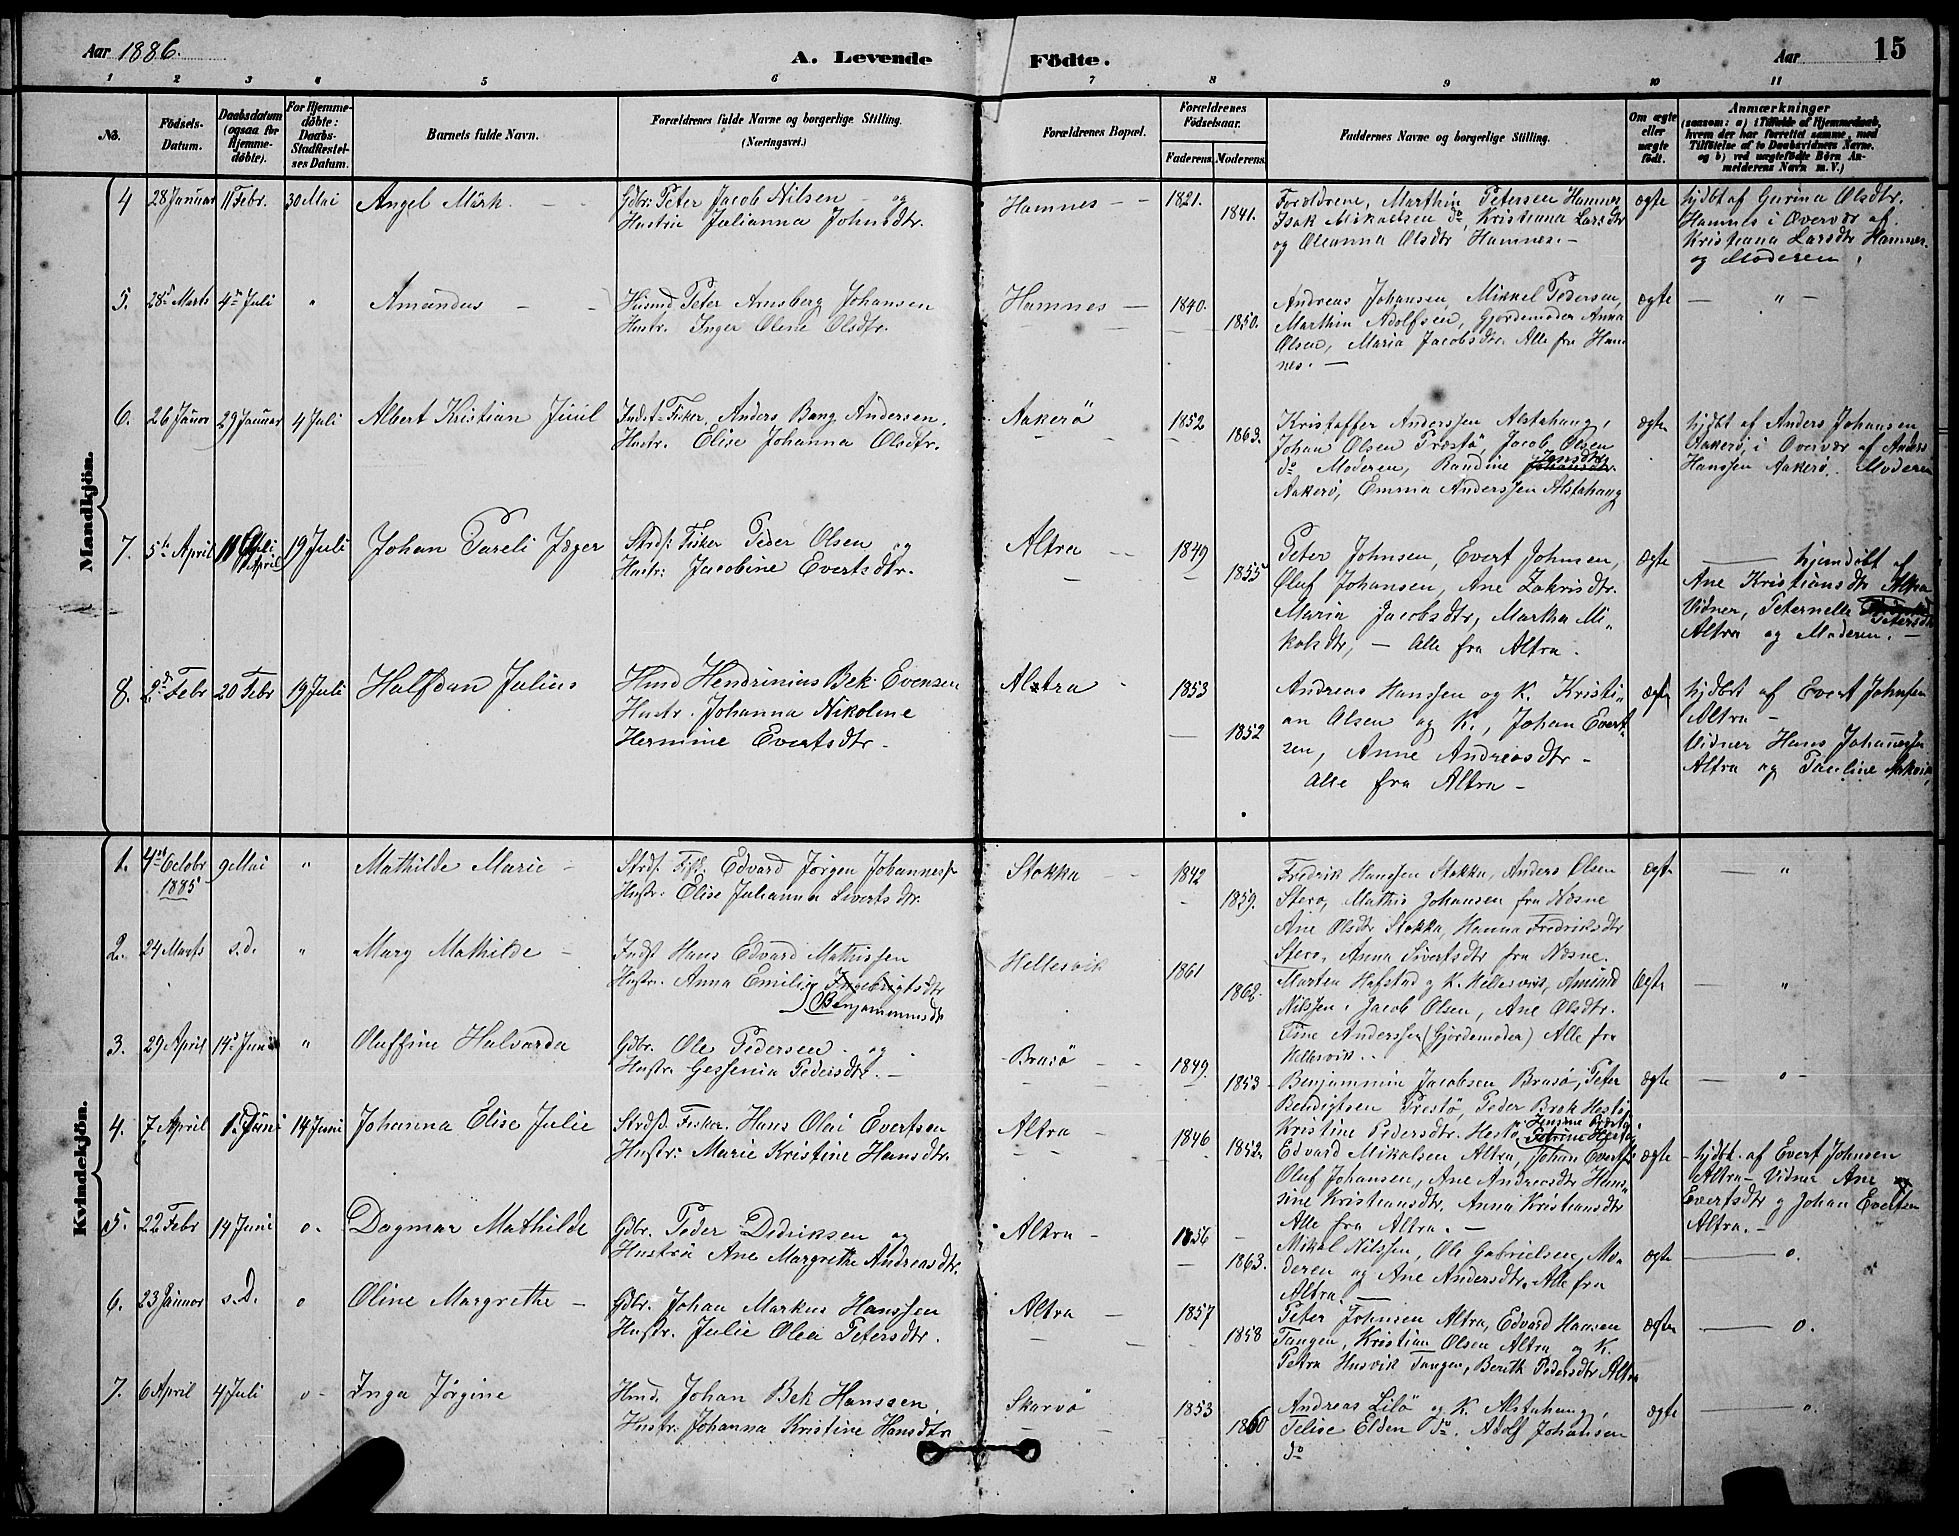 Aar 1886.
A. Levende
Födte.
Aar
15
1 2 3 4 5 6 7 8 9 10 11
No.
Födsels-
Datum.
Daabsdatum
(ogsaa for
Hjemme-
döbte).
For Hjemme-
döbte:
Daabs-
Stadfæstel-
ses Datum.
Barnets fulde Navn.
Forældrenes fulde Navne og borgerlige Stilling.
(Næringsvei.)
Forældrenes Bopæl.
Forældrenes
Födselsaar.
Faderens. Moderens.
Faddernes Navne og borgerlige Stilling.
Om ægte
eller
uægte
födt.
Anmærkninger
(saasom: a) i Tilfælde af Hjemmedaab,
hvem der har forrettet samme, med
Tilföielse af to Daabsvidners Navne.
og b) ved uægtefödte Börn An-
melderens Navn m. V.)
Mandkjön.
4 28 Januar 11 Febr. 30 Mai Angel Mürk - -
Gdbr. Peter Jacob Nilsen - og
Hustru Julianna Johnsdtr.
Hamnes - - 1821. 1841.
Foreldrene, Marthin Petersen Hamnes
Isak Mikaelsen do, Kristiana Larsdtr
og Oleanna Olsdtr Hamnes. -
ægte
hjdbt af Gurina Olsdtr.
Hamnes i Overvær af
Kristiana Larsdtr Hamnes.
og Moderen.
5. 28de Marts 4de Juli " Amandus - -
Husmd Peter Arnsberg Johansen
Hustr. Inger Olene Olsdtr.
Hamnes - 1840. 1850.
Andreas Johansen, Mikkel Pedersen,
Marthin Adolfsen, Gjordemoder Anna
Olsen, Maria Jacobsdtr. Alle fra Ham
nes. -
ægte - " -
6. 26 Januar 29 Januar 4 Juli Albert Kristian Juul
Indst. Fisker Anders Bang Andersen.
Hustr. Elise Johanna Olsdtr.
Aakerö 1852 1863.
Kristoffer Anderssen Alstahaug,
Johan Olsen Præstö, Jacob Olsen
do Moderen, Randine Jonsdtr
Aakerö, Emma Anderssen Alstahaug
ægte
hjdbt af Anders Johansen
Aakerö, i Overvær af Anders
Hanssen Aakerö. Moderen
7. 5te April 11 April 19 Juli Johan Pareli Jæger
Strds. Fisker Peder Olsen og
Hustr: Jacobine Evertsdtr.
Altra - 1849 1855
Peter Johnsen, Evert Johnsen,
Oluf Johansen, Ane Zakrisdtr.
Maria Jacobsdtr, Martha Mi„
kalsdtr, - Alle fra Altra.
ægte
- hjemdöbt af
Ane Kristiansdtr Altra
Vidner, Peternelle Petersdtr
Altra og Moderen. -
8. 2d Febr 20 Febr 19 Juli Halfdan Julius
Hmd Hendrinius Bek Evensen
Hustr. Johanna Nikoline
Hermine Evertsdtr -
Altra - 1853 1852
Andreas Hanssen og K. Kristi„
an Olsen og K., Johan Evert„
sen, Anne Andreasdtr -
Alle fra Altra -
ægte
hjdbt af Evert Johnsen
Altra -
Vidner Hans Johannessen
Altra og Pauline
Kvindekjön.
1. 4de Octobr 1885 9 Mai " Mathilde Marie -
Strds. Fisk. Edvard Jörgen Johanness.
Hustr. Elise Julianna Sivertsdtr.
Stokka - 1842 1859.
Fredrik Hanssen Stokka, Anders Olsen
Stero, Mathis Johansen fra Næsne
Ane Olsdtr Stokka, Hanna Fredriksdtr
Stero, Anna Sivertsdtr fra Næsne.
ægte - "
2. 24 Marts s.d. " Mary Mathilde -
Indst Hans Edvard Mathissen
Hustr. Anna Emilie Ingebrigtsdtr
(Benjaminsdtr
Hellesvik 1861 1862.
Marten Hafstad og K. Hellesvik, Amund
Nilssen, Jacob Olsen, Ane Olsdtr.
Tine Anderssen (Gjordemoder) Alle fra
Hellesvik.
Ægte - "
3. 29 April 14de Juni " Oluffine Halvarda
Gdbr. Ole Pedersen - og
Hustr. Gessenia Pedersdtr. -
Brasö - 1849. 1853
Benjammin Jacobsen Brasö, Peter
Bendigtsen Prestö, Peder Brok Hestö,
Kristine Pedersdtr. Hestö,
ægte - " -
4. 7 April 1 Juni 14 Juni Johanna Elise Julie
Strds. Fisker. Hans Olai Evertsen
Hustr: Marie Kristine Hansdtr.
Altra - 1846 1852
Edvard Mikalsen Altra, Johan Everts.
Oluf Johansen, Ane Andreasdtr Han„
sine Kristiansdtr, Anna Kristiansdtr
Alle fra Altra. -
ægte
hjdbt. af Evert Johnsen
Altra - Vidner Ane
Evertsdtr og Johan Evertsen
Altra. -
5. 22 Febr 14 Juni o - Dagmar Mathilde
Gdbr. Peder Dedriksen og
Hustru Ane Margrethe Andreasdtr.
Altra - 1856 1863.
Mikal Nilssen, Ole Gabrielsen, Mo„
deren og Ane Andersdtr. Alle fra
Altra -
ægte - o.
6. 23 Januar s.D. o Oline Margrethe -
Gdbr. Johan Markus Hanssen
Hustr. Julie Olea Petersdtr.
Altra - 1857 1858
Peter Johnsen Altra, Edvard Hansen
Tangen, Kristian Olsen Altra og K.
Petra Husvik Tangen, Berith Pedersdtr Altra
ægte - o.
7. 6 April 4 Juli o - Inga Jörgine
Hmd. Johan Bek Hanssen,
Hustr. Johanna Kristine Hansdtr
Skarvö - 1853 1860
Andreas Lilö og K. Alstahaug,
Telise Elden do. Adolf Johansen
do
ægte - o.